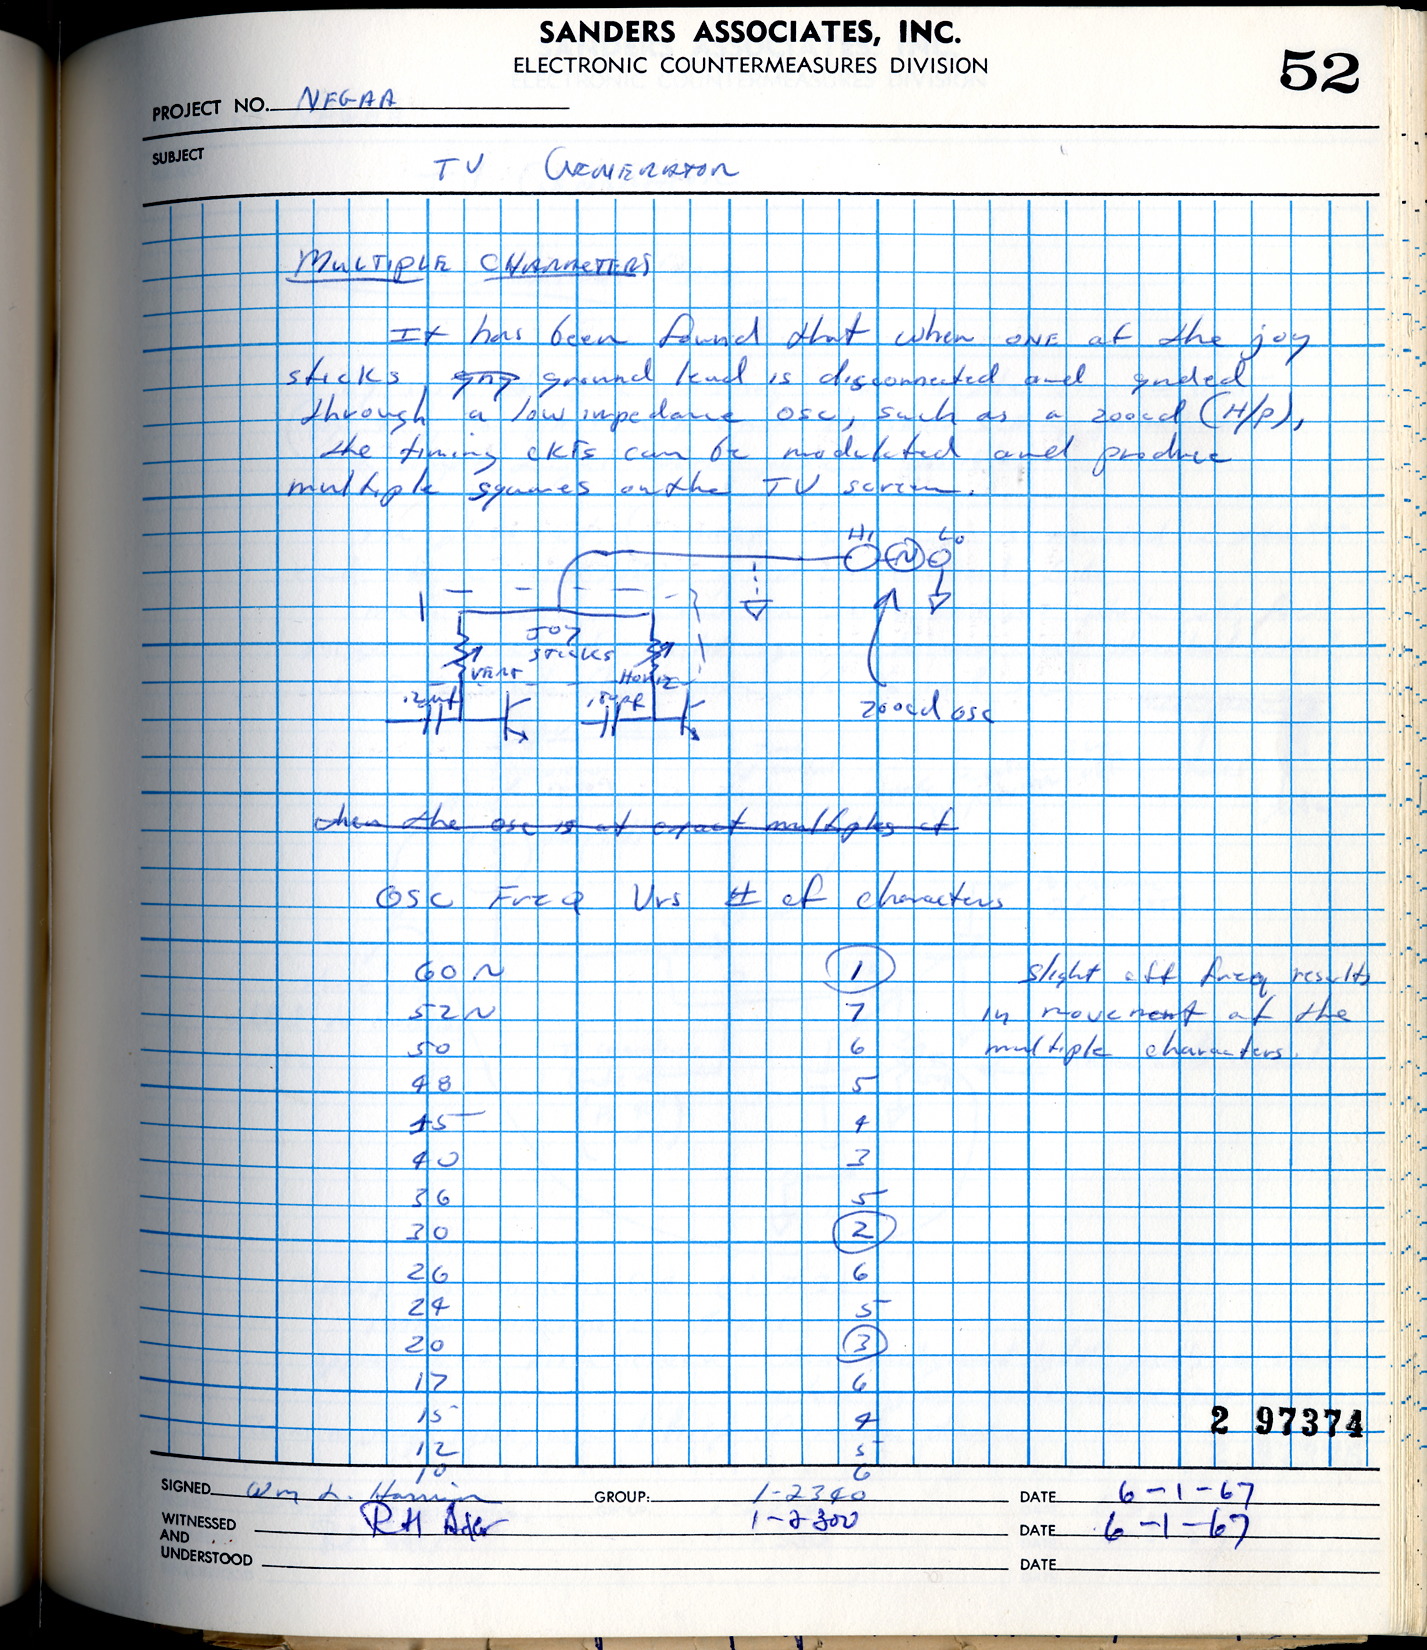 SANDERS ASSOCIATES, INC.
ELECTRONIC COUNTERMEASURES DIVISION
52
PROJECT NO. NFGAA
SUBJECT
TV GENERATOR
MULTIPLE CHARACTERS
It has been found that when ONE of the joy
sticks, ground lead is disconnected and gnded
through a low impedance osc, such as a 200cd (H/P),
the timing ckts can be modulated and produce
multiple squares on the TV screen.
Hi Lo
JOY
STICKS
VERT
HORIZ
.2μf
200cd osc
when the osc is at exact multiples of
OSC Freq Vrs # of characters
60 ~ 1 slight off freq results
52 ~ 7 in movement of the
50 6 multiple characters.
48 5
45 4
40 3
36 5
30 2
26 6
24 5
20 3
17 6
15 4
12 5
10 6
2 97374
SIGNED Wm L. Harrison GROUP: 1-2340 DATE 6-1-67
WITNESSED
AND
UNDERSTOOD
RH 1-2300 DATE 6-1-67
DATE